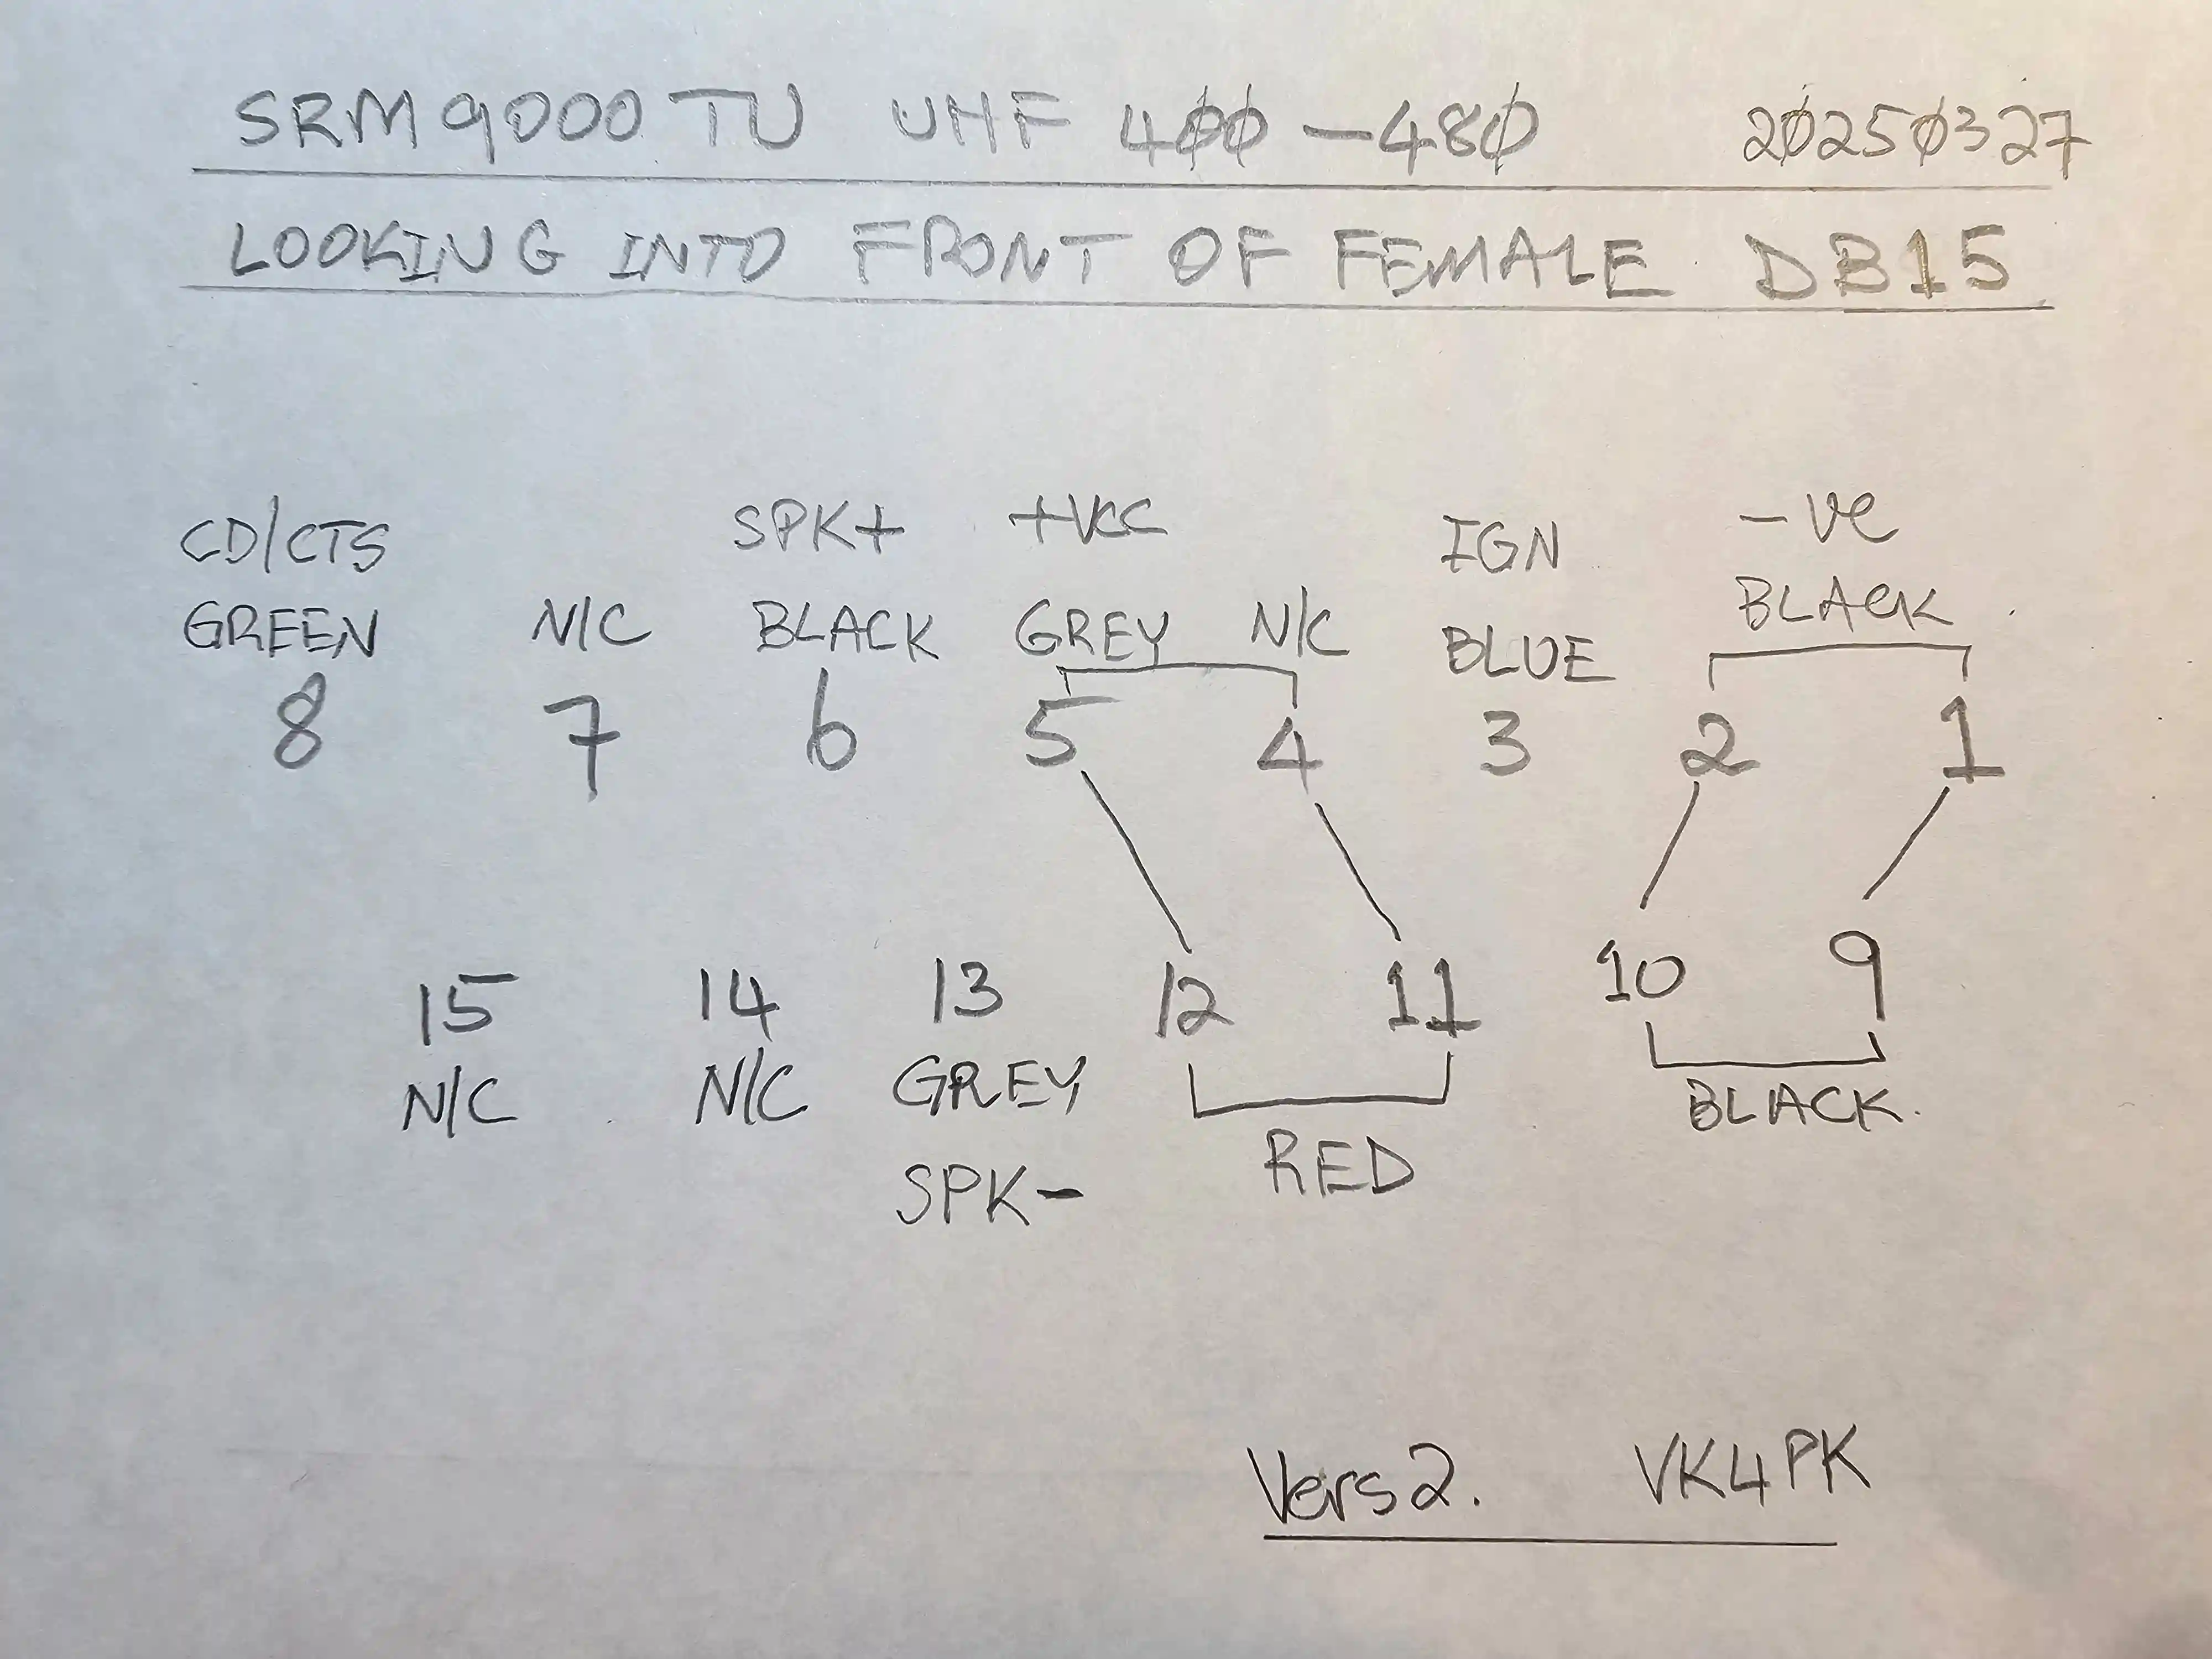 SRM9000 TU UHF 4ØØ-48Ø 2Ø25Ø327
LOOKING INTO FRONT OF FEMALE DB15
CD/CTS SPK+ +VCC IGN -ve
GREEN N/C BLACK GREY N/C BLUE BLACK
8 7 6 5 4 3 2 1
15 14 13 12 11 10 9
N/C N/C GREY RED BLACK.
SPK-
Vers 2. VK4PK